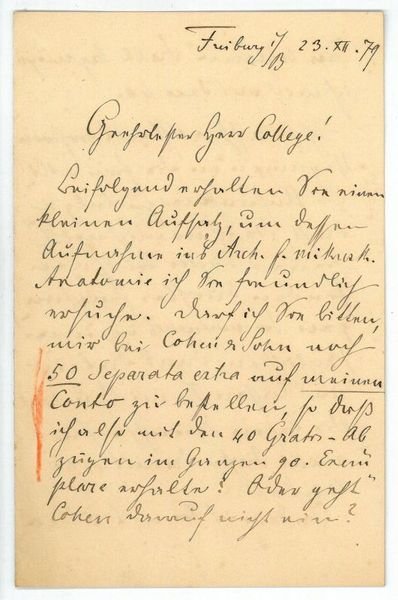 Freiburg i/B 23. XII. 79
Geehrtester Herr College!
Beifolgend erhalten Sie einen
kleinen Aufsatz, um dessen
Aufnahme in's Arch. f. mikrosk.
Anatomie ich Sie freundlich
ersuche. Darf ich Sie bitten,
mir bei Cohen & Sohn noch
50 Separata extra auf meinen
Conto zu bestellen, so daß
ich also mit den 40 Gratis-Ab
zügen im Ganzen 90. Exem
plare erhalte? Oder geht
Cohen darauf nicht ein?